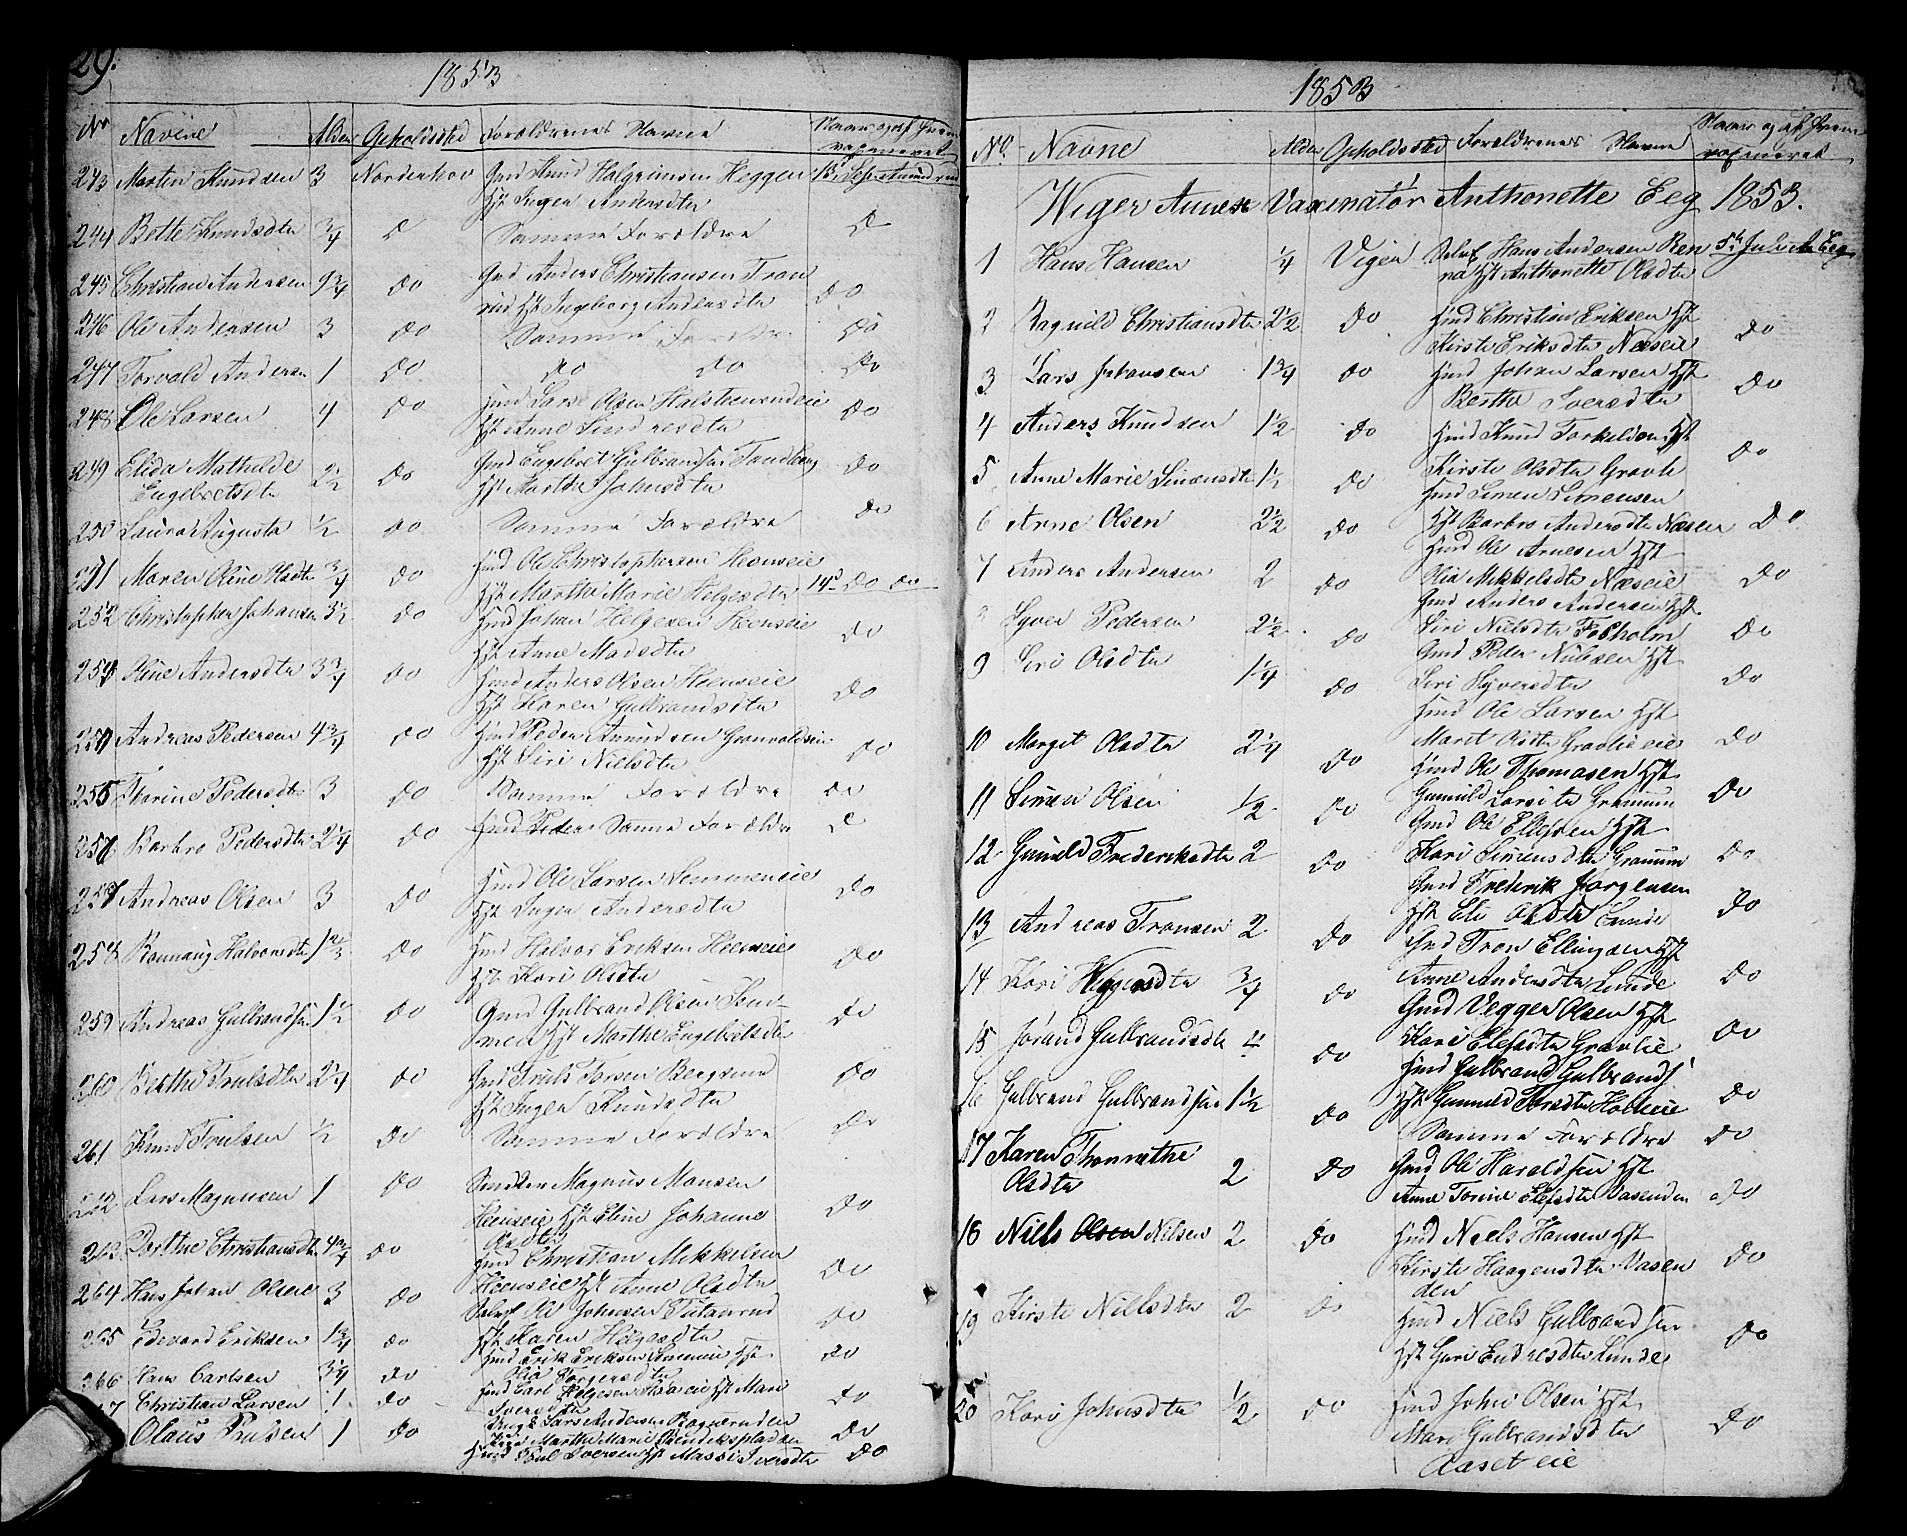 29.
1853
No Navne Alder Opholdssted Forældrenes Navne
243 Martin Knudsen 3 Norderhov Gmd Knud Halgrimsen Heggen
Hst Inger Andersdtr
244 Berthe Knudsdtr 3/4 Samme Forældre
245 Christian Andersen 9 3/4 do Gmd Anders Christiansen Tran
rud Hst Ingeborg Andersdtr do
246 Ole Andersen 3 do Samme Forældre do
247 Torvald Andersen 1 do do do do
248 Ole Larsen 4 do Hmd Lars Olsen Halstensrudeie
Hst Anne do
249 Elida Mathilde
Engebretsdtr 2 1/2 do Gmd Engebret Gulbrandsen Tandberg
Hst Marthe Johnsdtr do
250 Laura Augusta 1/2 do Samme Forældre do
251 Maren Oline Olsdtr 3/4 do Hmd Ole Christophersen Heenseie
Hst Marthe Marie Helgesdtr 14d do do
252 Christopher Johansen 5 1/2 do Hmd Johan Helgesen Heenseie
Hst Anne Madsdtr do
253 Oline Andersdtr 3 3/4 do Hmd Anders Olsen Heenseie
Hst Karen Gulbrandsdtr do
254 Andreas Pedersen 4 3/4 do Hmd Peder Amundsen Granvoldseie
Hst Siri Nielsdtr do
255 Marine Pedersdtr 3 do Samme Forældre do
Barbro Pedersdtr 2 1/4 do Hmd Peder Samme Forældre
257 Andreas Olsen 3 do Hmd Ole Larsen Semmeneie
Hst Inger Andersdtr do
258 Rannaug Halvorsdtr 1 2/3 do Hmd Halvor Eriksen Heenseie
Hst Kari Olsdtr do
259 Andreas Gulbrandsen 1 1/2 do Gmd Gulbrand Olsen Sem-
men Hst Marthe Engebretsdtr do
260 Berthe Trulsdtr 2 1/4 do Gmd Truls Torsen Bergsund
Hst Inger Knudsdtr do
261 Knud Trulsen 1/2 do Samme Forældre do
262 Lars Magnusen 1 do Magnus Monsen
Heenseie Hst Eline Johanne
Olsdtr do
263 Dorthe Christiansdtr 4 3/4 do Hmd Christian Mikkelsen
Heenseie Hst Anne Olsdtr do
264 Hans Johan Olsen 3 do Selvf Ole Johnsen Tutanrud
Hst Karen Helgesdtr do
265 Edevard Eriksen 1 3/4 do Hmd Erik Eriksen Hst
Olia Torgersdtr do
266 Hans Carlsen 3/4 do Hmd Carl Helgesen Hst Mari
Sversdtr do
Christian Larsen 1 do Lars Andersen
Marthe Marie do
Olaus Poulsen 1 do Hmd Poul Iversen Hst Massi Iversdtr do
1853
No. Navne Alder Opholdssted Forældrenes Navne
Wiger Annex Vaxinatør Anthonette Eeg 1853.
1 Hans Hansen 1/4 Viger Selvf Hans Andersen Ren
na Hst Anthonette Olsdtr 5te Juli A Eeg
2 Ragnild Christiansdtr 2 1/2 do Hmd Christian Eriksen Hst
Kirsti Eriksdtr Næseie do
3 Lars Johansen 1 3/4 do Hmd Johan Larsen Hst
Berthe Sversdtr do
4 Anders Knudsen 1 1/2 do Hmd Knud Torkeldsen Hst
Kirsti Olsdtr Gravli do
5 Anne Marie Simensdtr 1 1/2 do Gmd Simen Simensen
Hst Barbro Andersdtr Næsen do
6 Arne Olsen 2 1/2 do Hmd Ole Arnesen Hst
Olia Mikkelsdtr Næseie do
7 Anders Andersen 2 do Gmd Anders Andersen Hst
Siri Nielsdtr do
8 Syver Pedersen 2 1/2 do Gmd Peder Nielsen Hst
Siri Syversdtr do
9 Siri Olsdtr 1 1/4 do Hmd Ole Larsen Hst
Marit Olsdtr Gravlieeie do
10 Margit Olsdtr 2 1/4 do Hmd Ole Thomasen Hst
Gunnild Larsdtr Granum do
11 Simen Olsen 1/2 do Gmd Ole Ellefsen Hst
Kari Simensdtr Granum do
12 Gunild Frederiksdtr 2 do Gmd Frederik Jørgensen
Hst Eli Olsdtr Lunde do
13 Andreas Tronsen 2 do Gmd Tron Ellingsen Hst
Anne Andersdtr Lunde do
14 Kari Veggersdtr 3/4 do Gmd Vegger Olsen Hst
Kari Elefsdtr Gravlie do
15 Jørand Gulbrandsdtr 4 do Hmd Gulbrand Gulbrands
Hst Gunnild Holteie do
16 Gulbrand Gulbrandsen 1 1/2 do Samme Forældre do
17 Karen Thonnethe
Olsdtr 2 do Gmd Ole Haraldsen Hst
Anne Torine Elefsdtr Vasenden do
18 Niels Olsen Nilsen 2 do Hmd Niels Hansen Hst
Kirsti Haagensdtr Vasen
den do
19 Kirsti Nielsdtr 2 do Hmd Niels Gulbrandsen
Hst Guri Endresdtr Lunde do
20 Kari Johnsdtr 1/2 do Hmd John Olsen Hst
Mari Gulbrandsdtr
Aaseteie do